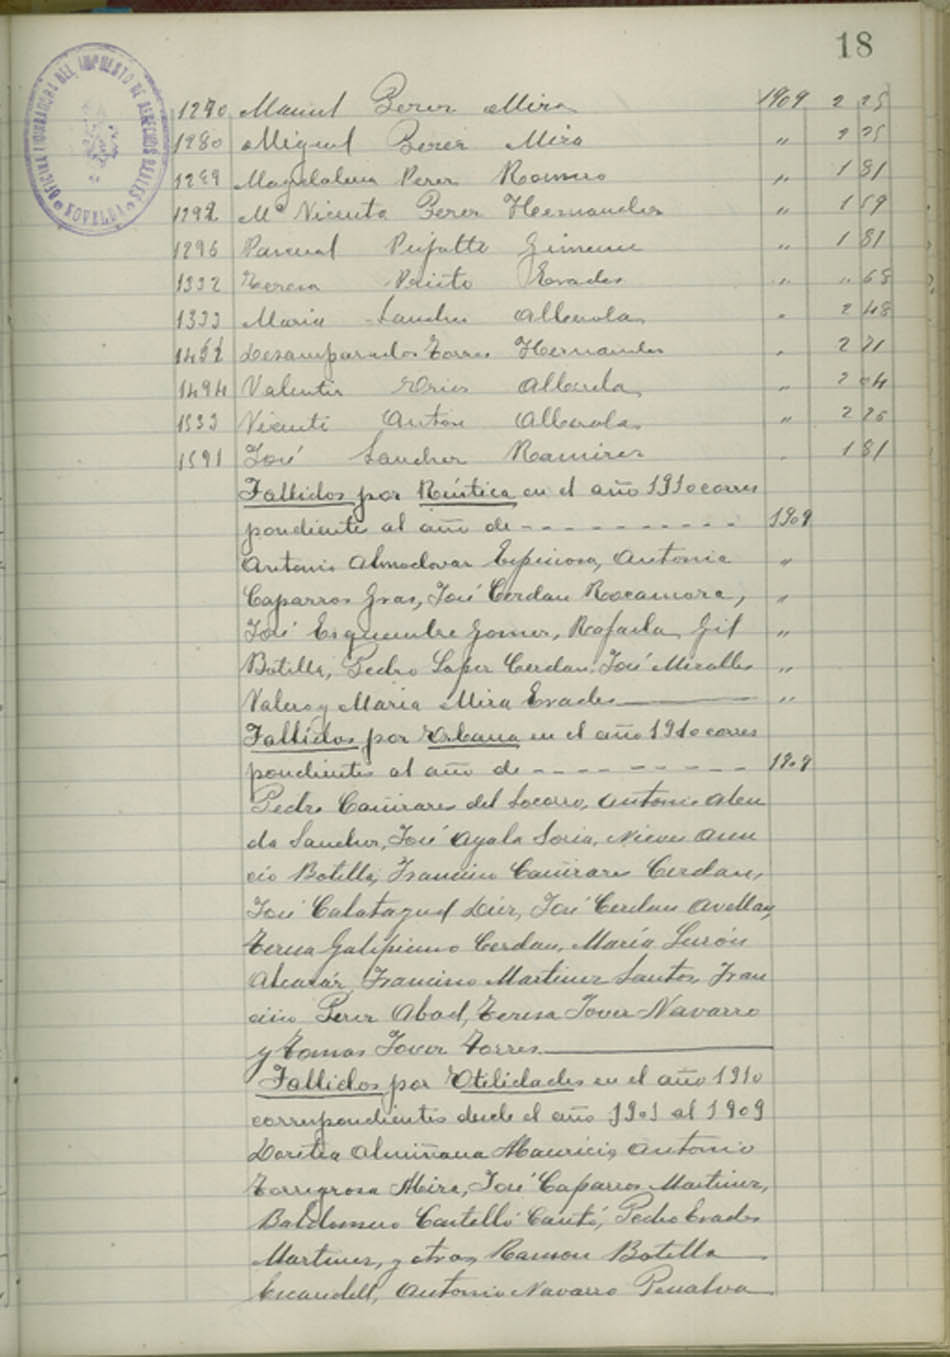 18
OFICINA LIQUIDADORA DEL IMPUESTO DE DERECHOS REALES
1270 Manuel Perez Mira 1909 2 25
1280 Miguel Perez Mira " 2 25
1289 Magdalena Perez Romero " 1 81
1292 Mª Vicenta Perez Hernandez " 1 59
1296 Pascual Pujalte Gimenez " 1 81
1332 Teresa Prieto Erades " " 68
1333 Maria Sanchez Alberola " 2 48
Desamparados Torres Hernandez " 2 71
1494 Valentin Alberola " 2 04
1533 Vicente Anton Alberola " 2 26
1591 José Sanchez Ramirez " 1 81
Fallidos por Rústica en el año 1910 corres
pondiente al año de - - - - - - - - - - 1909
Antonio Almodovar Espinosa, Antonia "
Caparros Gras, José Cerdan Rocamora, "
José Esquembre Gomez, Rafaela Gil "
Botella, Pedro Lopez Cerdan, José Miralles "
Valero y Maria Mira Erades "
Fallidos por Urbana en el año 1910 corres
pondientes al año de - - - - - - - - - 1909
Pedro Cañizares del Socorro, Antonio Alen
da Sanchez, José Ayala Soria, Nieves Asen
cio Botella, Francisco Cañizares Cerdan,
José Calatayud Diez, José Cerdan Avellan,
Teresa Galipienso Cerdan, María
Alcazár, Francisco Martinez Santos, Fran
cisco Perez Abad, Teresa Tover Navarro
y Tomas Tover Torres
Fallidos por Utilidades en el año 1910
correspondientes desde el año 1901 al 1909
Dorotea Almiñana Mauricio, Antonio
Torregrosa Mira, José Caparros Martinez,
Baldomero Castelló Cantó, Pedro Erades
Martinez, y otros, Ramon Botella
Escandell, Antonio Navarro Penalva